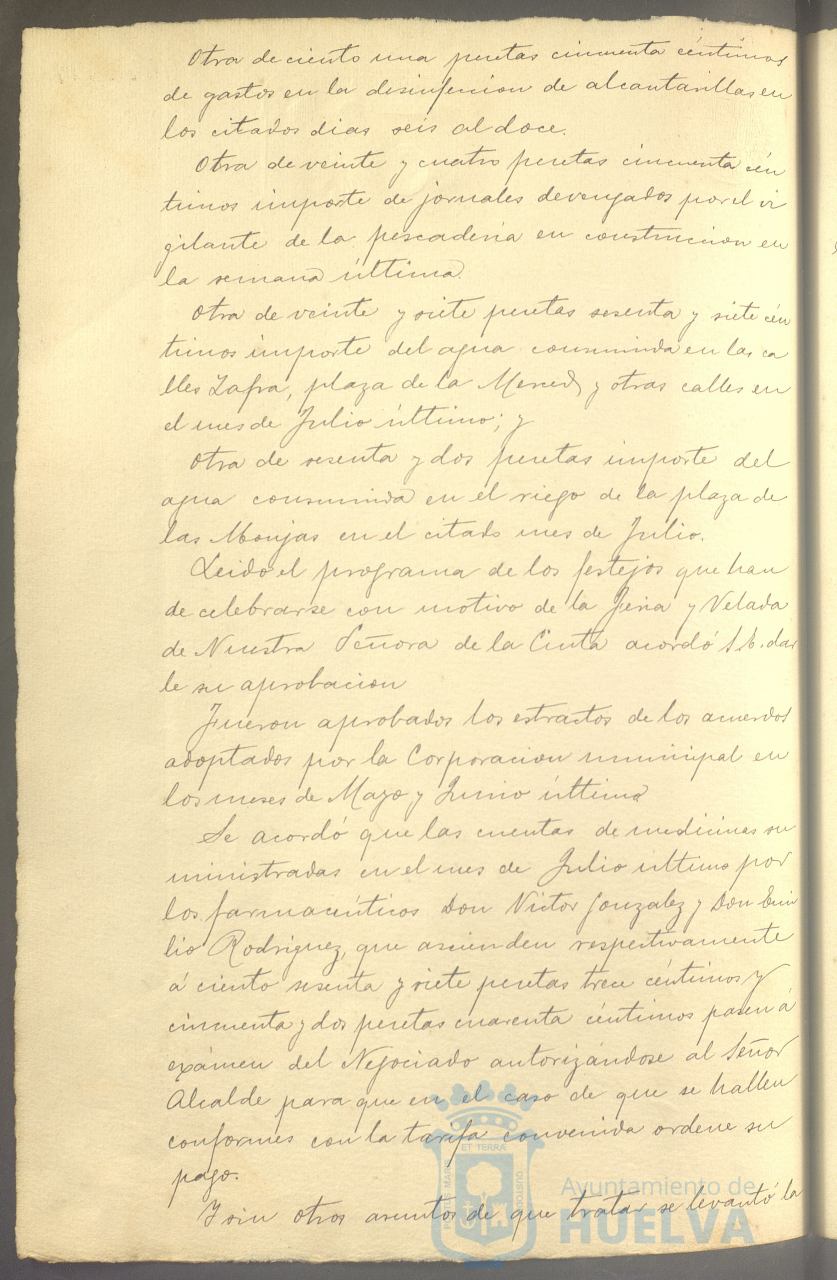 Otra de ciento una pesetas cincuenta céntimos
de gastos en la desinfeccion de alcantarillas en
los citados dias seis al doce.
Otra de veinte y cuatro pesetas cincuenta cén
timos importe de jornales devengados por el vi
gilante de la pescaderia en construccion en
la semana última.
Otra de veinte y siete pesetas sesenta y siete cén
timos importe del agua consumida en las ca
lles Zafra, plaza de la Merced y otras calles en
el mes de Julio último; y
Otra de sesenta y dos pesetas importe del
agua consumida en el riego de la plaza de
las Monjas en el citado mes de Julio.
Leido el programa de los festejos que han
de celebrarse con motivo de la Feria y Velada
de Nuestra Señora de la Cinta acordó S.E. dar
le su aprobacion
Fueron aprobados los estractos de los acuerdos
adoptados por la Corporacion municipal en
los meses de Mayo y Junio último
Se acordó que las cuentas de medicinas su
ministradas en el mes de Julio último por
los farmacéuticos Don Victor Gonzalez y Don Emi
lio Rodriguez, que ascienden respectivamente
á ciento sesenta y siete pesetas trece céntimos y
cincuenta y dos pesetas cuarenta céntimos pasen á
exámen del Negociado autorizándose al Señor
Alcalde para que en el caso de que se hallen
conformes con la tarifa convenida ordene su
pago.
Y sin otros asuntos de que tratar se levantó la
Ayuntamiento de
HUELVA
ET TERRÆ